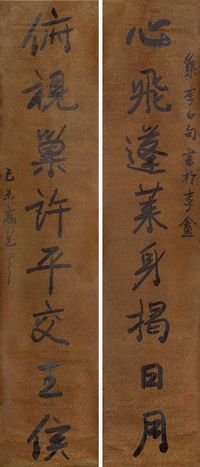 心飛蓬萊身揭日月
集李白句書於
俯視巢許平交王侯
己未高邕